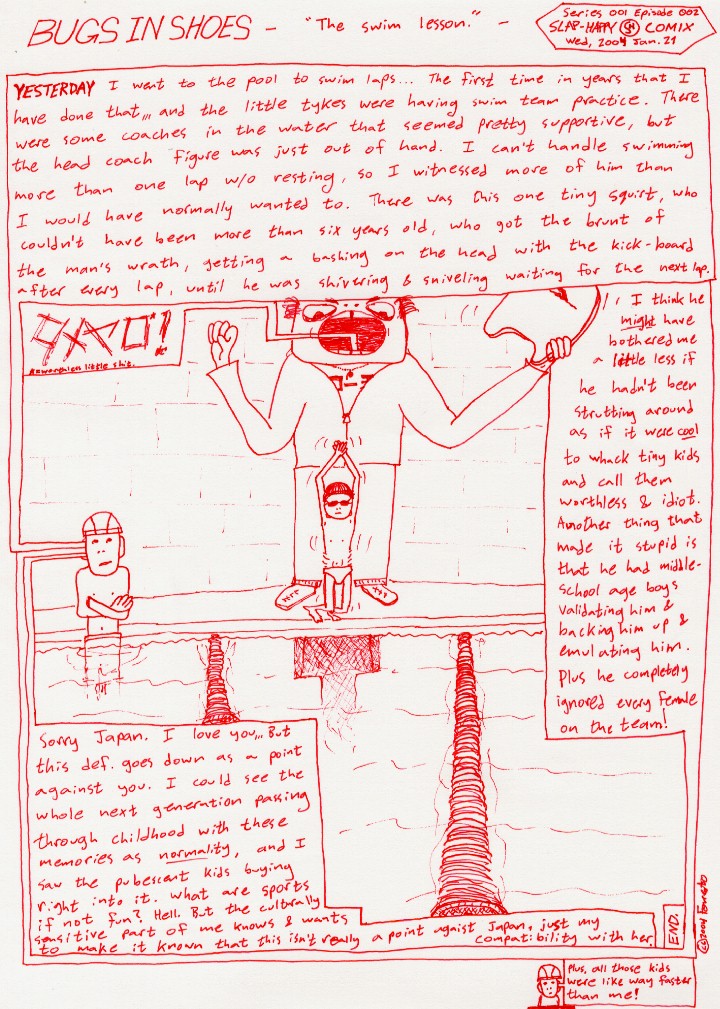 BUGS IN SHOES - "The swim lesson." -
Series 001 Episode 002
SLAP-HAPPY SH COMIX
Wed, 2004 Jan. 21
YESTERDAY I went to the pool to swim laps... The first time in years that I
have done that,,, and the little tykes were having swim team practice. There
were some coaches in the water that seemed pretty supportive, but
the head coach figure was just out of hand. I can't handle swimming
more than one lap w/o resting, so I witnessed more of him than
I would have normally wanted to. There was this one tiny squirt, who
couldn't have been more than six years old, who got the brunt of
the man's wrath, getting a bashing on the head with the kick-board
after every lap, until he was shivering & sniveling waiting for the next lap.
*=worthless little shit.
I think he
might have
bothered me
a little less if
he hadn't been
strutting around
as if it were cool
to whack tiny kids
and call them
worthless & idiot.
Another thing that
made it stupid is
that he had middle-
school age boys
validating him &
backing him up &
emulating him.
Plus he completely
ignored every female
on the team!
Sorry Japan. I love you,,, But
this def. goes down as a point
against you. I could see the
whole next generation passing
through childhood with these
memories as normality, and I
saw the pubescent kids buying
right into it. What are sports
if not fun? Hell. But the culturally
sensitive part of me knows & wants
to make it known that this isn't really a point agaist Japan, just my
compatibility with her.
END.
(c)2004 Fornesto
Plus, all those kids
were like way faster
than me!